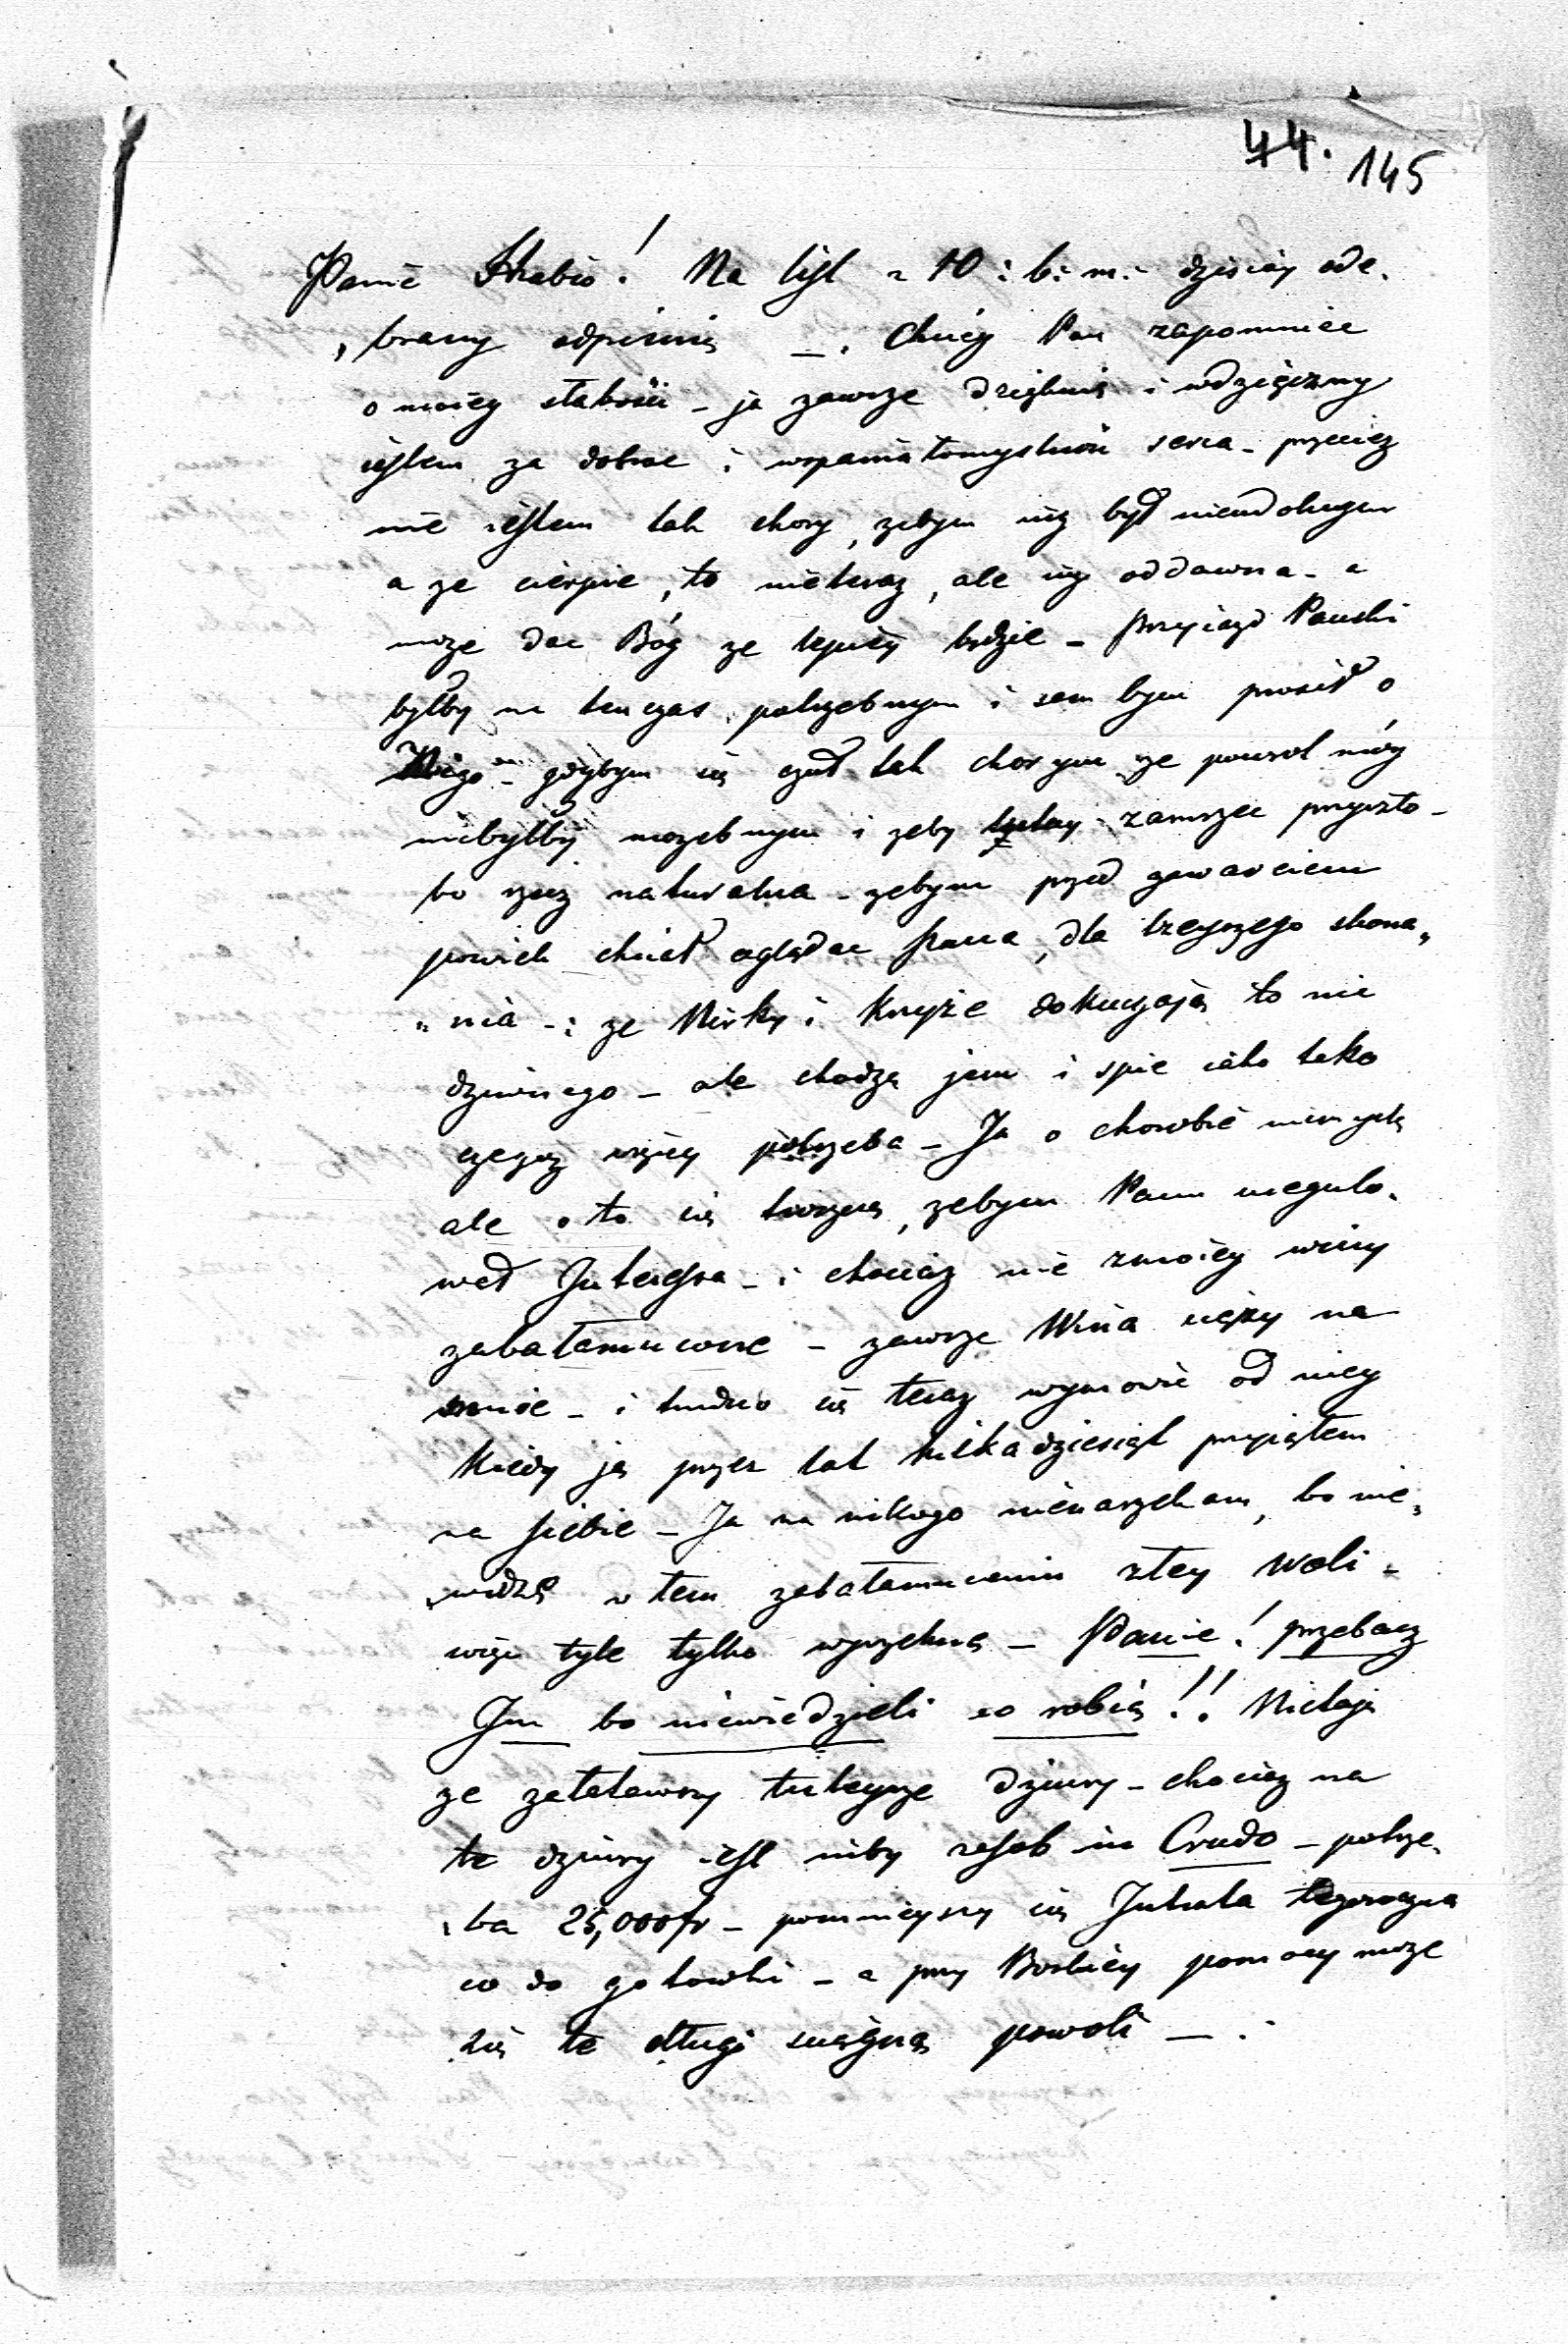 44. 145
Panie Hrabio! Na list z 10 : b: m: dzisiay ode„
„brany odpisuię —. Chciey Pan zapomniec
o moiey słabości – ja zawsze dziękuię i wdzięczny
iestem za dobroc i wspaniałomyslność serca – przeciez
nie iestem tak chory, zebym iuz był niedołęgim
a ze cierpie, to nieteraz, ale iuz oddawna – a
moze dac Bóg ze lepiey będzie – przyiazd Pański
byłby na tenczas potrzebnym i sam bym prosił o
Niego – gdybym się czuł tak chorym ze powrot móy
niebyłby mozebnym i zeby tutay zamrzec przyszło –
bo rzecz naturalna – zebym przed zawarciem
powiek chciał oglądac Pana, dla lzeyszego skona„
„nia – i ze Nirky i Krzyże dokuczają to nic
dziwnego – ale chodzę jem i spie iako tako
czegoz więcy potrzeba – Ja o chorobie niemyslę
ale o to się troszczę, zebym Panu uregulo„
wał Interessa – i chociaz nie zmoiey winy
zabałamucone – zawsze Wina ciąży na
mnie – i trudno się teraz wymowic od niey
kiedy ją przez lat kilkadziesiąt przyiąłem
na siebie – Ja na nikogo nienarzekam, bo nie„
„widzę w tem zabałamuceniu złey woli –
więc tyle tylko wyrzeknę – Panie! przebacz
Im bo niewiedzieli co robią!! Nietaję
ze załatawszy tuteysze dziury – chociaz na
te dziury iest niby zasob in Crudo – potrze„
„ba 25,000 fr – pomnieyszy się Intrata tegoroczna
co do gotowki – a przy Boskiey pomocy moze
się te długi sciągną powoli — .